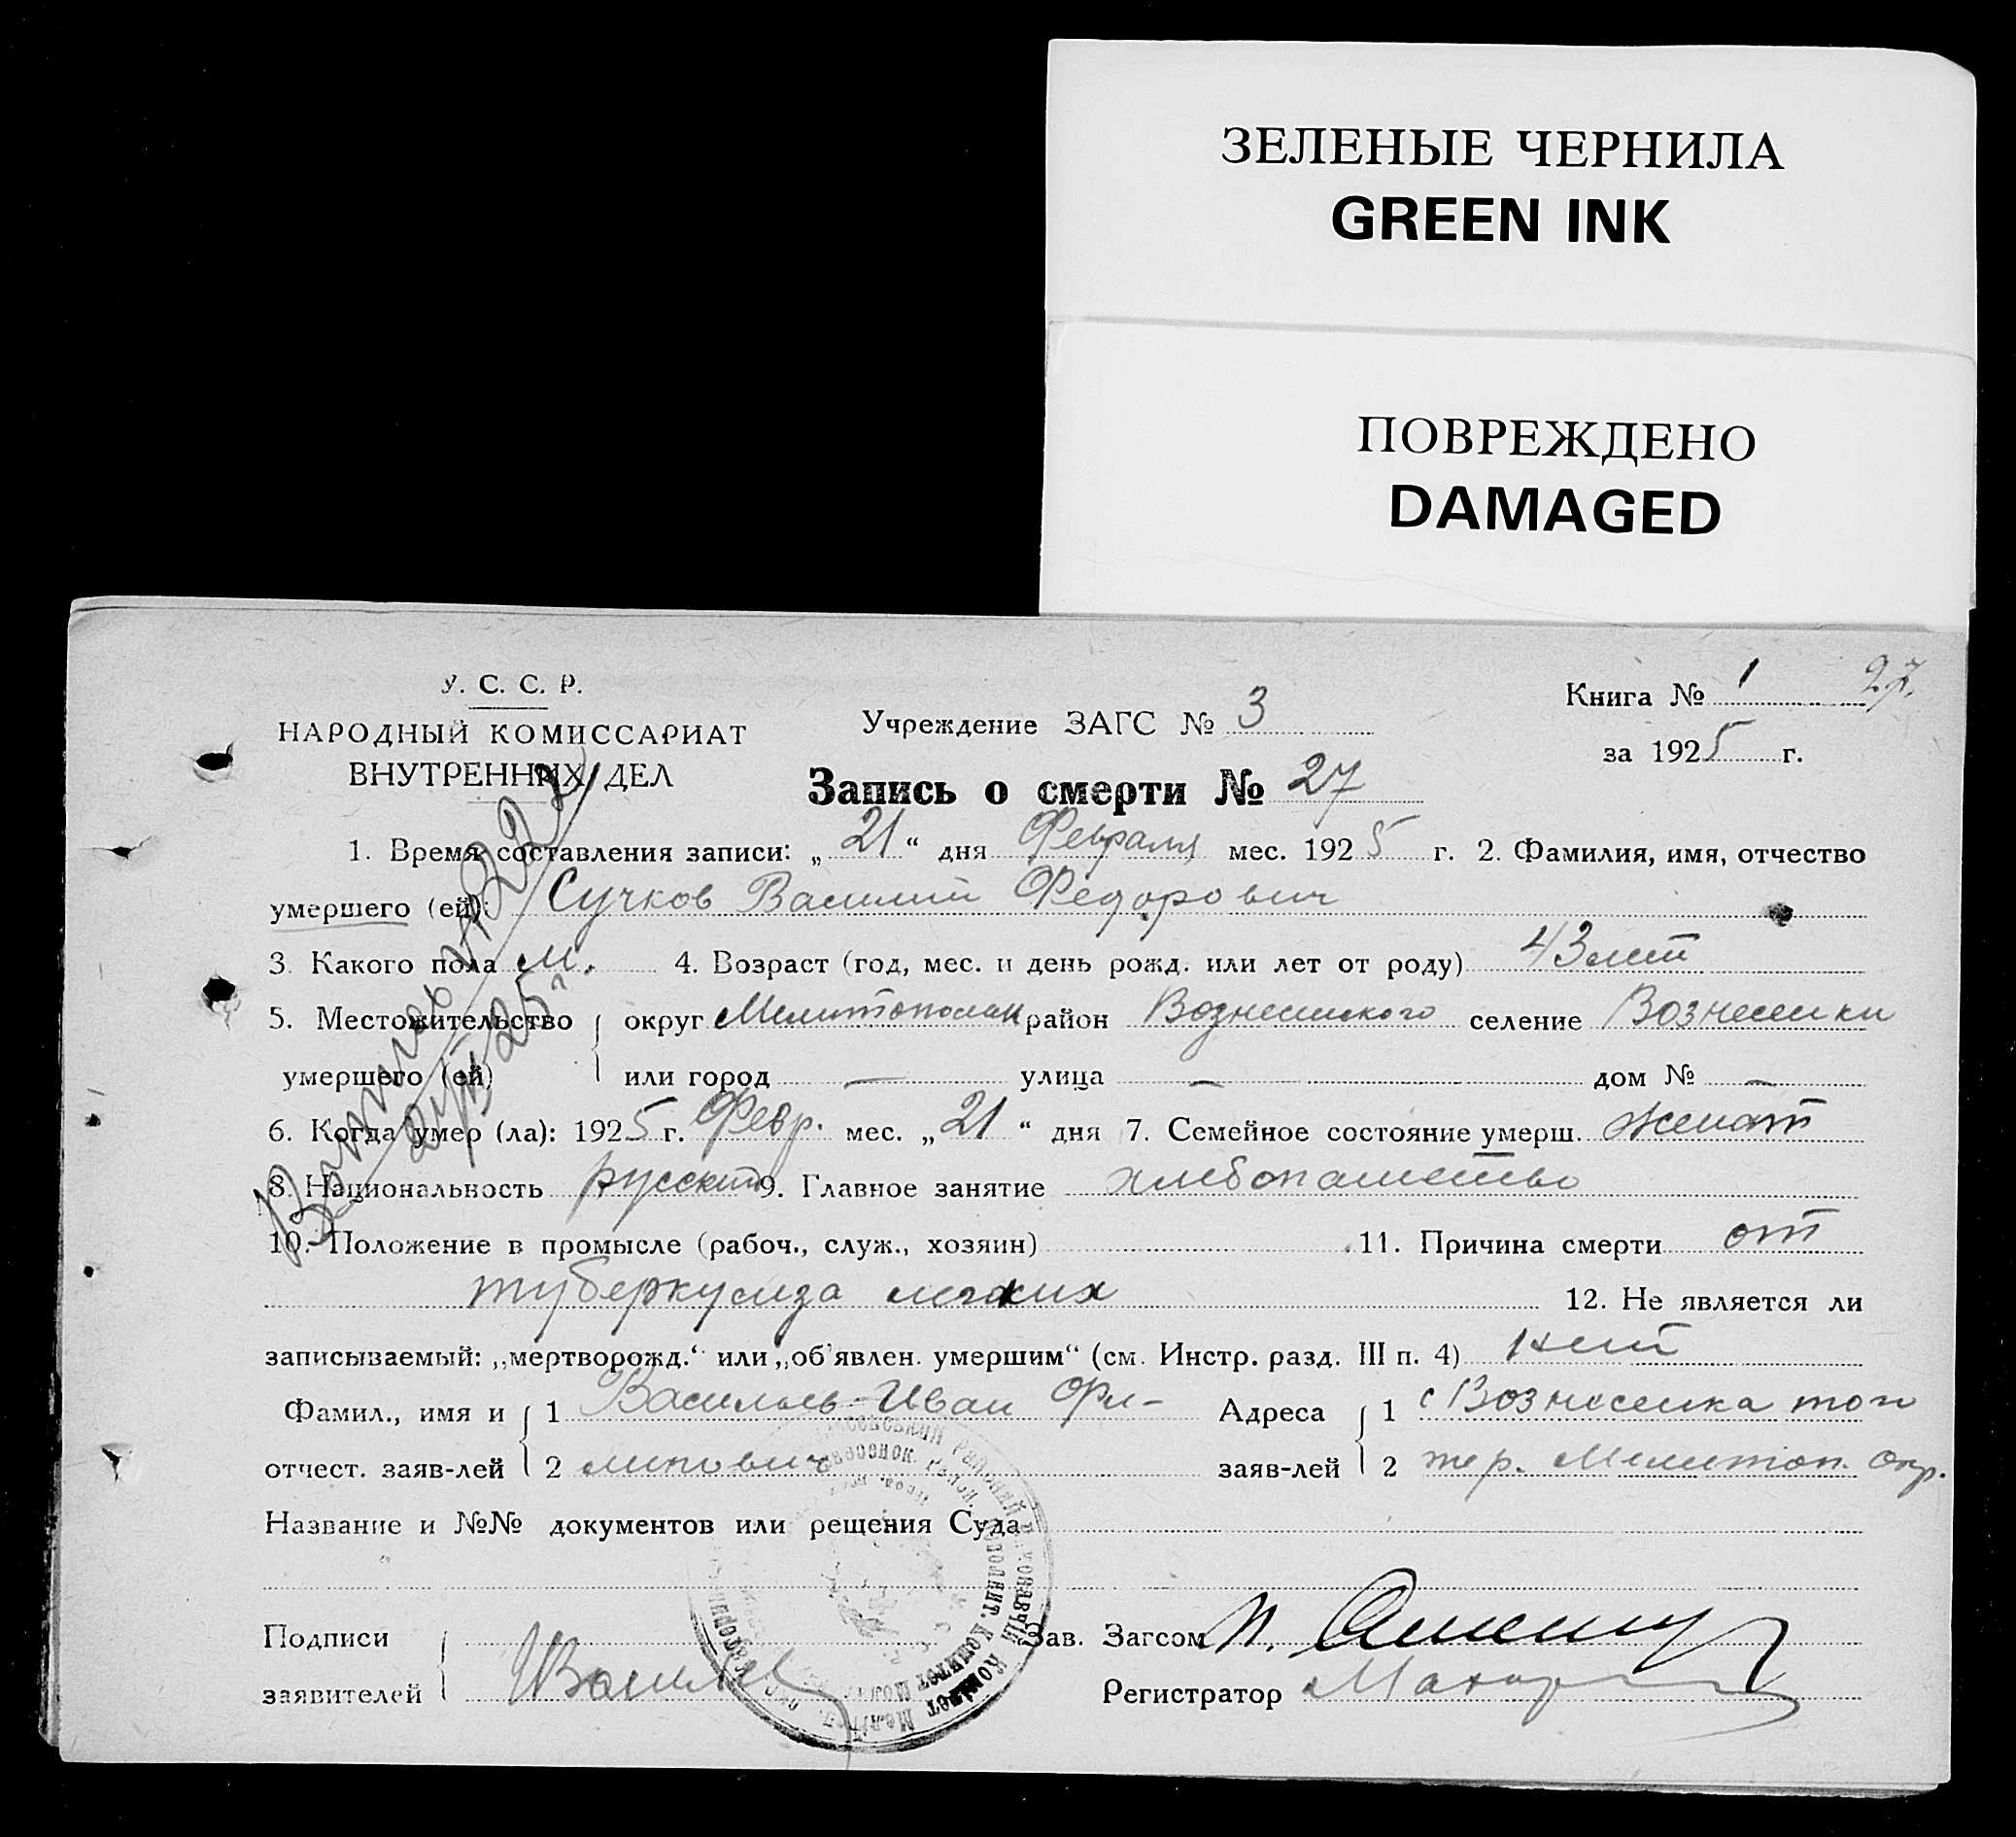 ЗЕЛЕНЫЕ ЧЕРНИЛА
GREEN INK
ПОВРЕЖДЕНО
DAMAGED
У. С. С. Р.
НАРОДНЫЙ КОМИССАРИАТ
ВНУТРЕННИХ ДЕЛ
Учреждение ЗАГС № 3
Книга № 1 27.
за 1925 г.
Запись о смерти № 27
1. Время составления записи: „21“ дня Февраля мес. 1925 г. 2. Фамилия, имя, отчество
умершего (ей): Сучков Василий Федорович
3. Какого пола м. 4. Возраст (год, мес. и день рожд. или лет от роду) 43 лет
5. Местожительство округ Мелитопольск район Вознесенского селение Вознесенки
умершего (ей) или город — улица — дом № —
6. Когда умер (ла): 1925 г. Февр. мес. „21“ дня 7. Семейное состояние умерш. женат
8. Национальность русский 9. Главное занятие хлебопашество
10. Положение в промысле (рабоч., служ., хозяин) 11. Причина смерти от
туберкулиза легких 12. Не является ли
записываемый: „мертворожд.“ или „об'явлен. умершим“ (см. Инстр. разд. III п. 4) нет
Фамил., имя и 1 Васильев Иван Фи- Адреса 1 с Вознесенка того
отчест. заяв-лей 2 липович заяв-лей 2 тер. Мелитоп. окр.
Название и №№ документов или решения Суда
Подписи Зав. Загсом
заявителей Регистратор